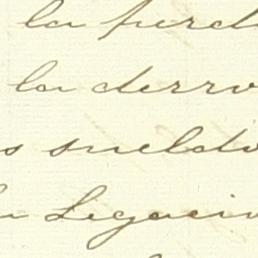 la perd
la derro
s sueldo
la Legacio